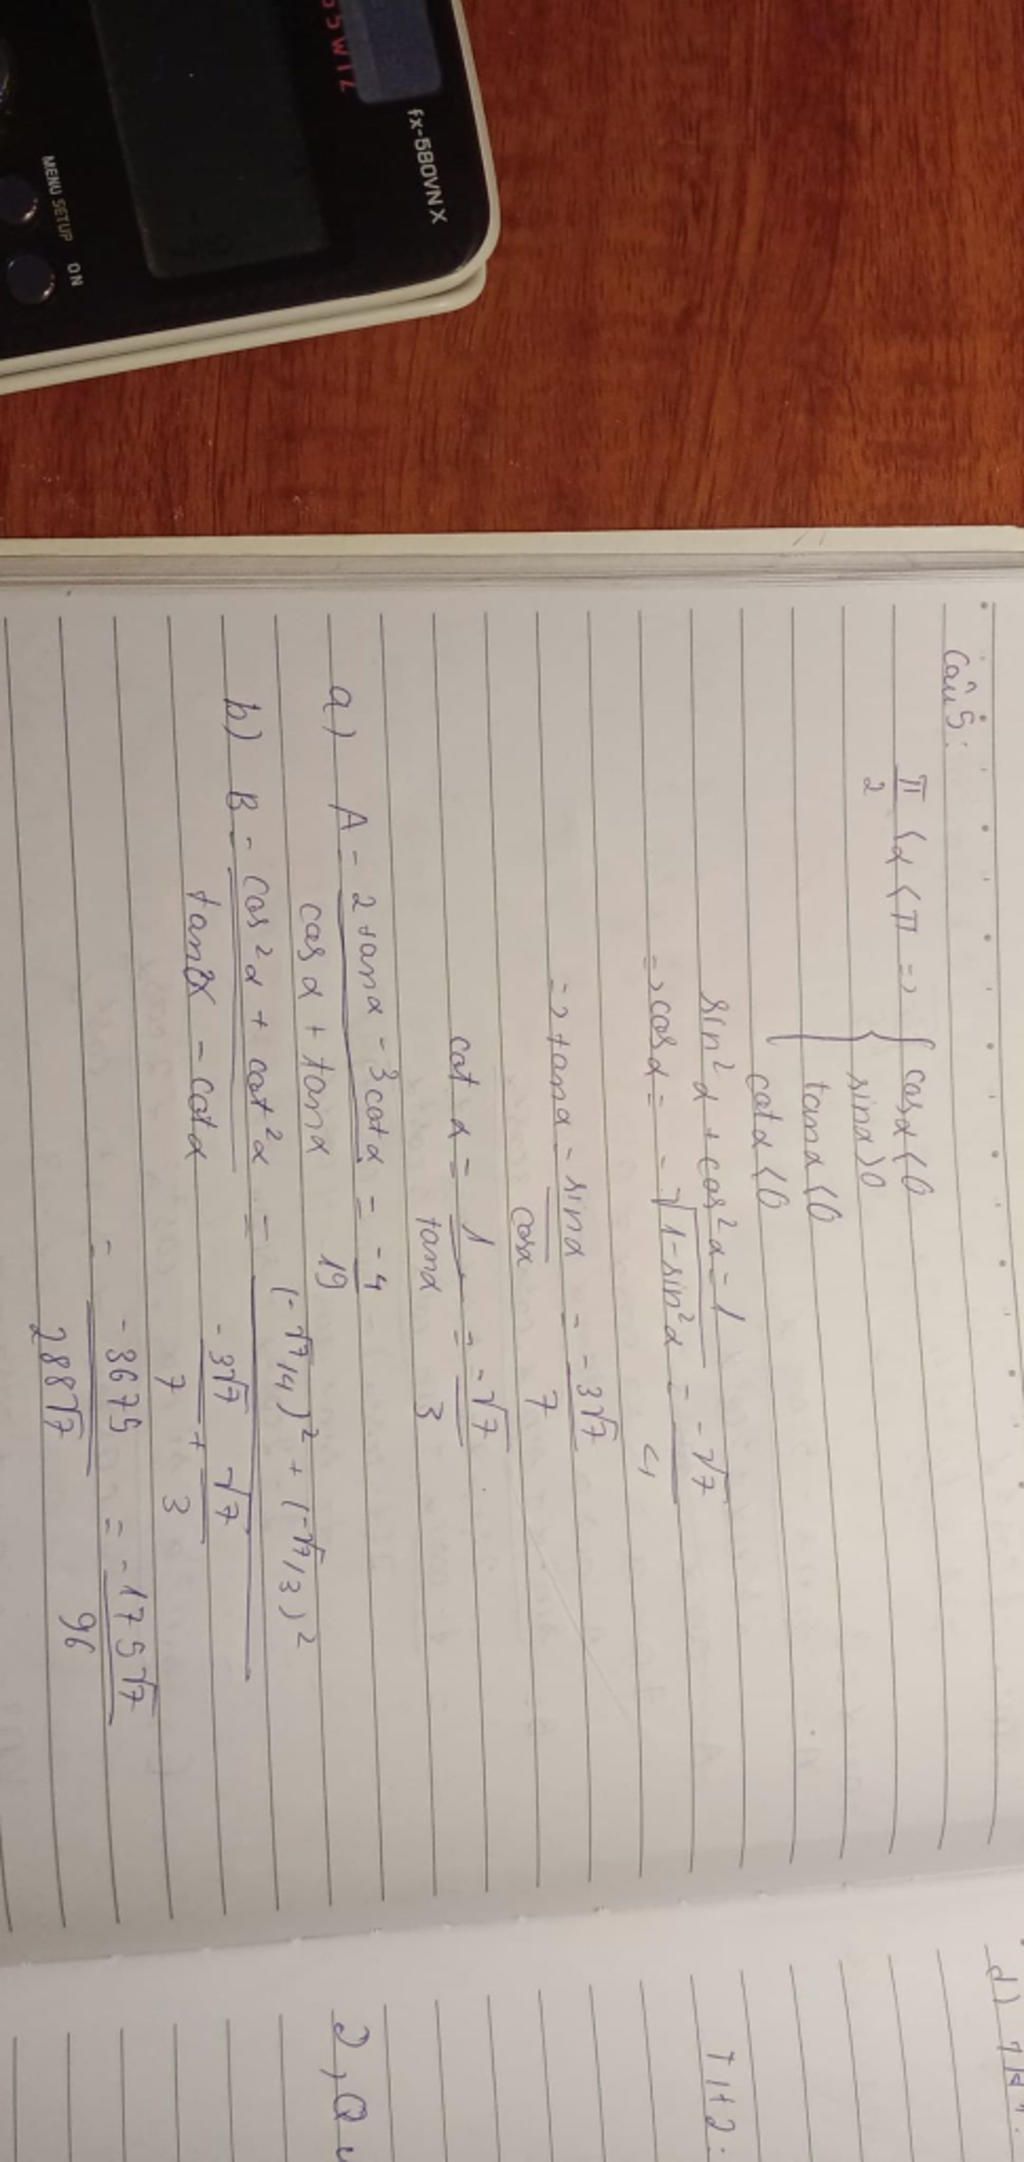 fx-580VN X
MENU SETUP ON
Câu 5:
π/2 < α < π => { cosα < 0
sinα > 0
tanα < 0
cotα < 0
sin²α + cos²α = 1
=> cosα = -√(1-sin²α) = -√7/4
=> tanα = sinα/cosα = -3√7/7
cot α = 1/tanα = -√7/3
a) A = (2tanα - 3cotα)/(cosα + tanα) = -4/19
b) B = (cos²α + cot²α)/(tanα - cotα) = ((-√7/4)² + (-√7/3)²)/(-3√7/7 + √7/3)
= -3675/(288√7) = -175√7/96
TH2: